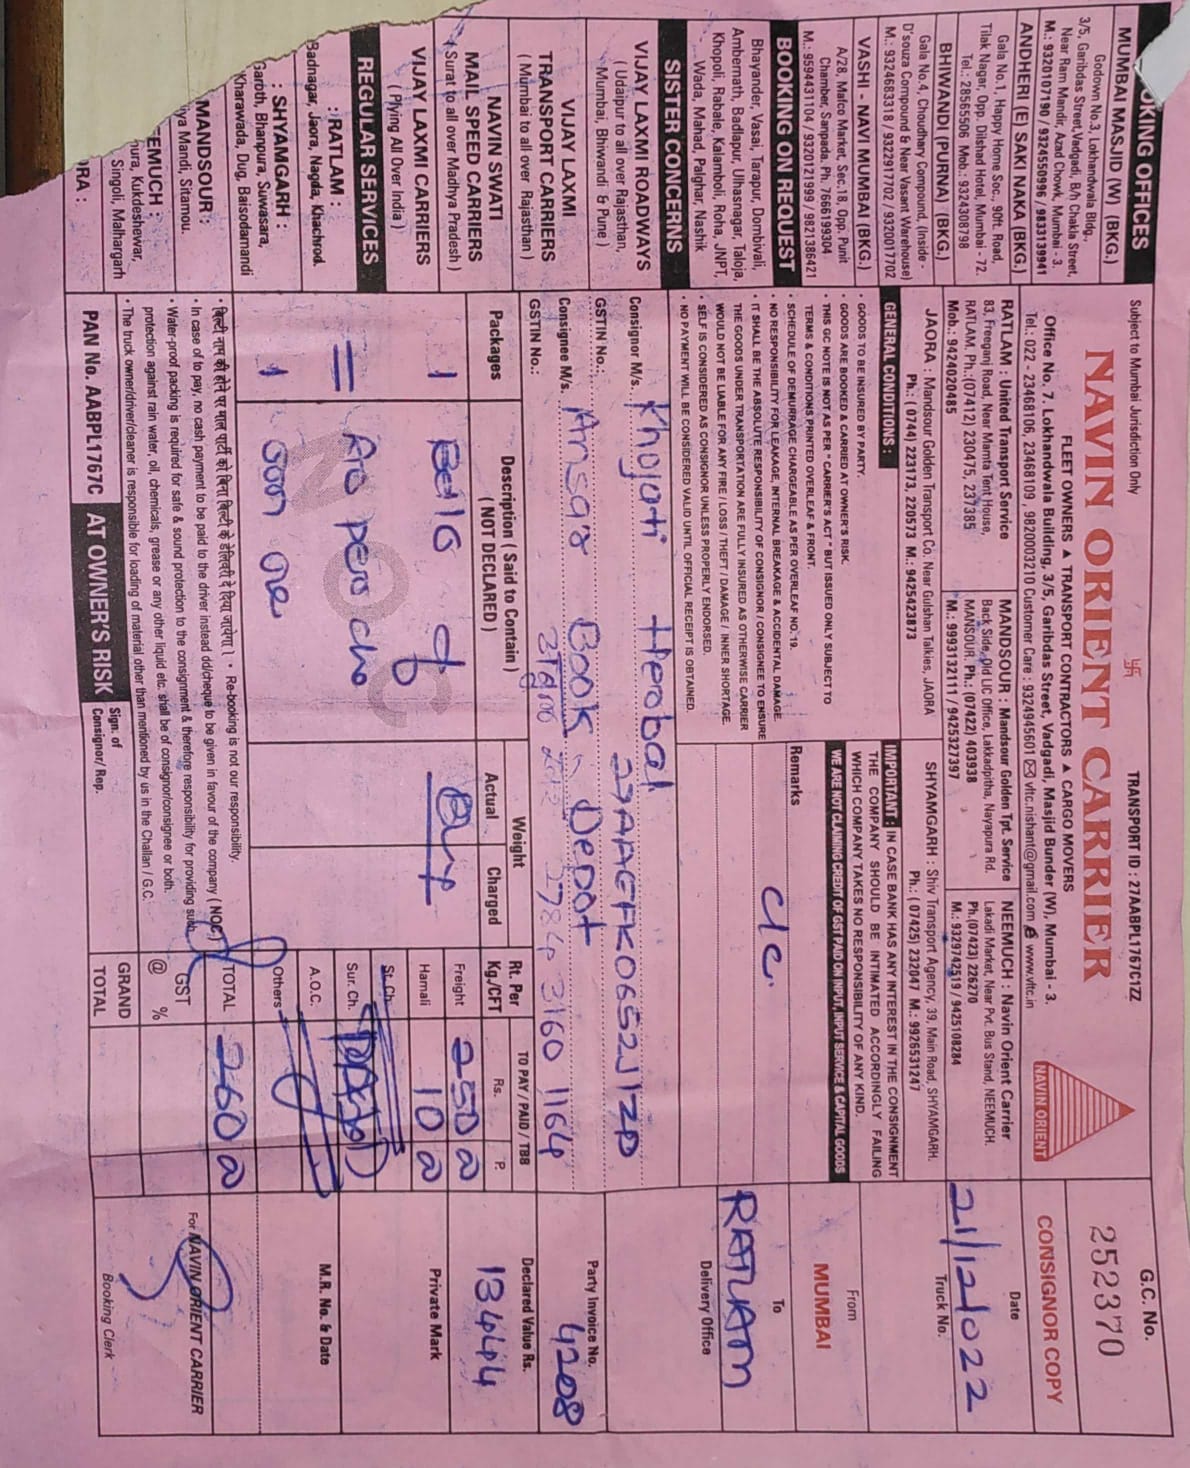 BOOKING OFFICES
MUMBAI MASJID (W) (BKG.)
Godown No.3, Lokhandwala Bldg.,
3/5, Garibdas Street, Vadgadi, B/h Chakla Street,
Near Ram Mandir, Azad Chowk, Mumbai - 3.
M.: 9320107190 / 9324550996 / 9833139941
ANDHERI (E) SAKI NAKA (BKG.)
Gala No.1, Happy Home Soc., 90ft. Road,
Tilak Nagar, Opp. Dilshad Hotel, Mumbai - 72.
Tel.: 28565506 Mob.: 9324308798
BHIWANDI (PURNA) (BKG.)
Gala No.4, Choudhary Compound, (Inside -
D'souza Compound & Near Vasant Warehouse)
M.: 9324683318 / 9322917702 / 9320017702
VASHI - NAVI MUMBAI (BKG.)
A/28, Mafco Market, Sec.18, Opp. Punit
Chamber, Sanpada. Ph. 7666199304
M.: 9594431104 / 9320121999 / 9821386421
BOOKING ON REQUEST
Bhayander, Vasai, Tarapur, Dombivali,
Ambernath, Badlapur, Ulhasnagar, Taloja,
Khopoli, Rabale, Kalamboli, Roha, JNPT,
Wada, Mahad, Palghar, Nashik
SISTER CONCERNS
VIJAY LAXMI ROADWAYS
( Udaipur to all over Rajasthan,
Mumbai, Bhiwandi & Pune )
VIJAY LAXMI
TRANSPORT CARRIERS
( Mumbai to all over Rajasthan )
NAVIN SWATI
MAIL SPEED CARRIERS
( Surat to all over Madhya Pradesh )
VIJAY LAXMI CARRIERS
( Plying All Over India )
REGULAR SERVICES
: RATLAM :
Badnagar, Jaora, Nagda, Khachrod.
: SHYAMGARH :
Garoth, Bhanpura, Suwasara,
Kharawada, Dug, Baisodamandi
MANDSOUR :
Mandi, Sitamou.
EEMUCH :
Kukdeshewar,
Singoli, Malhargarh
ORA :
Subject to Mumbai Jurisdiction Only
TRANSPORT ID : 27AABPL1767C1ZZ
NAVIN ORIENT CARRIER
FLEET OWNERS ▲ TRANSPORT CONTRACTORS ▲ CARGO MOVERS
Office No. 7, Lokhandwala Building, 3/5, Garibdas Street, Vadgadi, Masjid Bunder (W), Mumbai - 3.
Tel.: 022 - 23468106, 23468109 , 9820003210 Customer Care : 9324945601 vltc.nishant@gmail.com www.vltc.in
NAVIN ORIENT
RATLAM : United Transport Service
83, Freeganj Road, Near Mamta Tent House,
RATLAM, Ph.:(07412) 230475, 237385
Mob.: 9424020485
MANDSOUR : Mandsour Golden Tpt. Service
Back Side, Old UC Office, Lakkadpitha, Nayapura Rd.
MANSOUR, Ph.: (07422) 403938
M.: 9993132111 / 9425327397
NEEMUCH : Navin Orient Carrier
Lakadi Market, Near Pvt. Bus Stand, NEEMUCH.
Ph.(07423) 226270
M.: 9329742519 / 9425108284
JAORA : Mandsour Golden Transport Co. Near Gulshan Talkies, JAORA
Ph.: (0744) 223173, 220573 M.: 9425423873
SHYAMGARH : Shiv Transport Agency, 39, Main Road, SHYAMGARH.
Ph.: ( 07425) 232047 M.: 9926531247
GENERAL CONDITIONS :
• GOODS TO BE INSURED BY PARTY.
• GOODS ARE BOOKED & CARRIED AT OWNER'S RISK.
• THIS GC NOTE IS NOT AS PER "CARRIER'S ACT" BUT ISSUED ONLY SUBJECT TO
TERMS & CONDITIONS PRINTED OVERLEAF & FRONT.
• SCHEDULE OF DEMURRAGE CHARGEABLE AS PER OVERLEAF NO. 19.
• NO RESPONSIBILITY FOR LEAKAGE, INTERNAL BREAKAGE & ACCIDENTAL DAMAGE.
• IT SHALL BE THE ABSOLUTE RESPONSIBILITY OF CONSIGNOR / CONSIGNEE TO ENSURE
THE GOODS UNDER TRANSPORTATION ARE FULLY INSURED AS OTHERWISE CARRIER
WOULD NOT BE LIABLE FOR ANY FIRE / LOSS / THEFT / DAMAGE / INNER SHORTAGE.
• SELF IS CONSIDERED AS CONSIGNOR UNLESS PROPERLY ENDORSED.
• NO PAYMENT WILL BE CONSIDERED VALID UNTIL OFFICIAL RECEIPT IS OBTAINED.
IMPORTANT : IN CASE BANK HAS ANY INTEREST IN THE CONSIGNMENT
THE COMPANY SHOULD BE INTIMATED ACCORDINGLY FAILING
WHICH COMPANY TAKES NO RESPONSIBILITY OF ANY KIND.
WE ARE NOT CLAIMING CREDIT OF GST PAID ON INPUT, INPUT SERVICE & CAPITAL GOODS
Remarks
G.C. No.
252370
CONSIGNOR COPY
Date
21/12/022
Truck No.
From
MUMBAI
To
RATLAM
Delivery Office
Consignor M/s. Khojati Herobal
GSTIN No.: 27AAGFK0652J1ZD
Consignee M/s. Ansar Book Depot
GSTIN No.: 2784 3160 1164
Party Invoice No.
4208
Declared Value Rs.
13444
Private Mark
M.R. No. & Date
Packages
Description ( Said to Contain )
( NOT DECLARED )
Weight
Actual
Charged
Rt. Per
Kg./CFT
TO PAY / PAID / TBB
Rs. P.
1
1
NOC
Freight 250
Hamali 10
St. Ch.
Sur. Ch.
A.O.C.
Others
TOTAL 260
GST
@ %
GRAND
TOTAL
• बिल्टी नाम की होने पर माल पार्टी को बिना बिल्टी के डिलेवरी दे दिया जायेगा । • Re-booking is not our responsibility.
• In case of to pay, no cash payment to be paid to the driver instead dd/cheque to be given in favour of the company ( NOC )
• Water-proof packing is required for safe & sound protection to the consignment & therefore responsibility for providing such
protection against rain water, oil, chemicals, grease or any other liquid etc. shall be of consignor/consignee or both.
• The truck owner/driver/cleaner is responsible for loading of material other than mentioned by us in the Challan / G.C.
PAN No. AABPL1767C
AT OWNER'S RISK
Sign. of
Consignor/ Rep.
For NAVIN ORIENT CARRIER
Booking Clerk